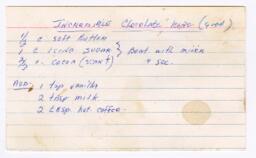 INCREDIBLE Chocolate Icing (Good)
1/2 c. SOFT BUTTER
1 c ICING SUGAR } Beat with mixer
c. COCOA (SCANT) 4 sec.
ADD: 1 tsp vanilla
2 tbsp milk
2 tbsp hot coffee